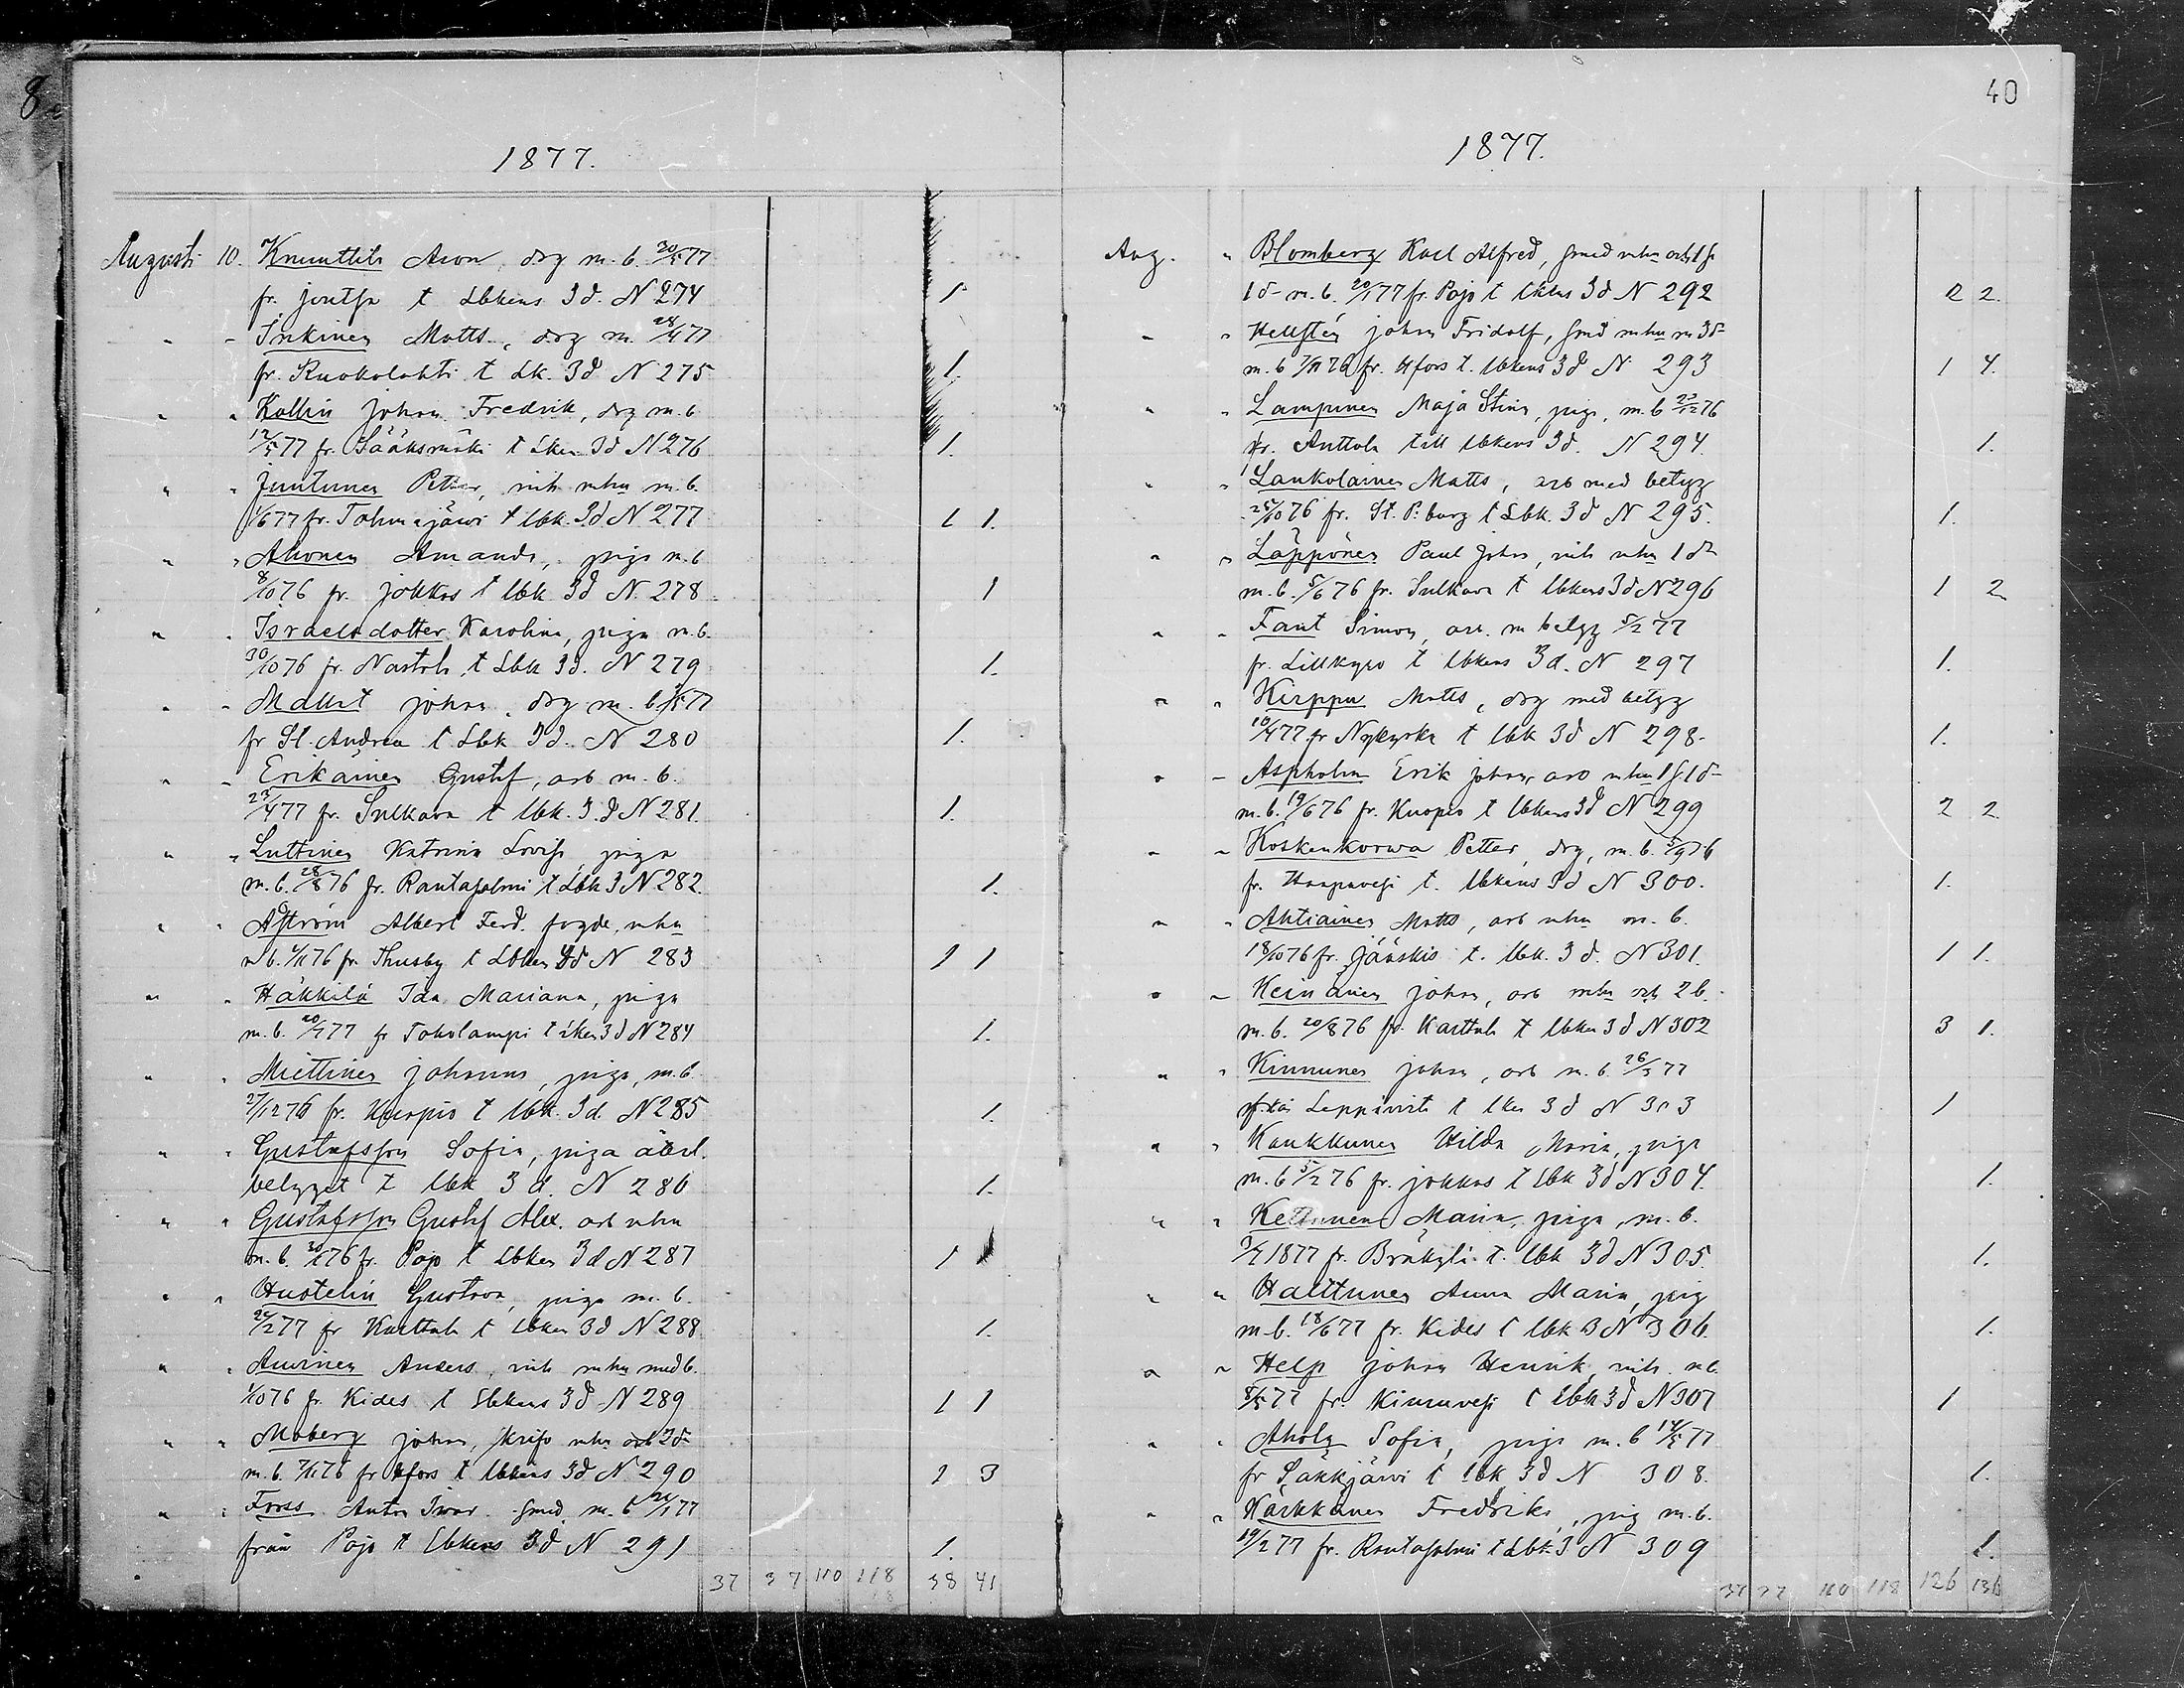 8
1877.
Augusti 10. Knuuttila Aron, drg m. b. 30/5 77
fr. Joutsa t Lbkens 3 d. N 274 1
" " Inkinen Matts, drg m. 24/4 77
fr. Ruokolahti t Lk. 3 d N 275 1.
" " Kollin Johan Fredrik, drg m. b
12/5 77 fr. Sääksmäki t Lken 3 d N 276 1.
" " Juntunen Petter, inh mhu m. b.
1/6 77 fr. Tohmajärvi t lbk. 3 d N 277 1 1.
" " Ahonen Amanda, piga m. b
8/10 76 fr. Jokkas t lbk 3 d N 278 1
" " Israelsdotter Karolina, piga m. b.
30/10 76 fr. Nastola t Lbk 3 d. N 279 1.
" " Mallat Johan, drg m. b /5 77
fr St. Andrea t Lbk 3 d. N 280 1.
" " Erikäinen Gustaf, arb m. b.
23/4 77 fr. Sulkava t lbk. 3. d N 281. 1.
" " Luttinen Katrina Lovisa, piga
m. b. 28/8 76 fr. Rantasalmi t Lbk 3 N 282. 1.
" " Åström Albert Ferd. fogde, mhu
m b. /11 76 fr. Thusby t Lbken 3 d N 283 1 1
" " Häkkilä Ida Mariana, piga
m. b. 20/7 77 fr Toholampi t Lken 3 d N 284 1.
" " Miettinen Johanna, piga, m. b
27/12 76 fr. Kuopio t lbk. 3 d. N 285 1.
" " Gustafsson Sofia, piga återl.
betyget t lbk 3 d. N 286 1.
" " Gustafsson Gustaf Alex. arb mhu
m. b. 30/ 76 fr. Pojo t Lbken 3 d N 287 1
" " Hustelin Gustava, piga m. b.
24/2 77 fr Karttula t Lbken 3 d N 288 1.
" " Auvinen Anders, inh mhu med b.
1/10 76 fr. Kides t Lbkens 3 d N 289 1 1
" " Moberg Johan, skrifv mhu och 2 d
m. b. 7/11 76 fr Hfors t lbkens 3 d N 290 1 3
" " Fross Anton Ivar. smed, m. b 21/ 77
från Pojo t Lbkens 3 d N 291 1.
37 37 110 118 38 41
40
1877.
Aug. " Blomberg Karl Alfred, smed mhu och 1 s
1 d m. b. 20/1 77 fr. Pojo t lbkens 3 d N 292 2 2.
" " Hellstén Johan Fridolf, smed mhu m 3 d
m. b 7/11 76 fr. Hfors t. lbkens 3 d N 293 1 4.
" " Lampinen Maja Stina, piga, m. b 23/12 76
fr. Anttola till lbkens 3 d. N 294. 1.
" " Laukolainen Matts, arb med betyg
25/10 76 fr. St. P:burg t Lbk. 3 d N 295. 1.
" " Läppönen Paul Johan, inh mhu 1 d
m. b. 5/6 76 fr. Sulkava t lbkens 3 d N 296 1 2
" " Fant Simon, arb. m betyg 5/2 77
fr. Lillkyro t lbkens 3 d. N 297 1.
" " Kirppu Matts, drg med betyg
10/4 77 fr Nykyrka t lbk 3 d N 298. 1.
" " Aspholm Erik Johan, arb mhu 1 s 1 d
m. b. 19/6 76 fr. Kuopio t lbkens 3 d N 299 2 2
" " Koskenkorwa Petter, drg, m. b. 3/9 76
fr. Haapavesi t. lbkens 3 d N 300. 1.
" " Ahtiainen Matts, arb mhu m. b.
18/10 76 fr. Jääskis t. lbk. 3 d. N 301. 1 1.
" " Keinänen Johan, arb mhu och 2 b.
m. b. 20/8 76 fr. Karttula t lbken 3 d N 302 3 1.
" " Kinnunen Johan, arb m. b. 26/3 77
från Leppävirta t lken 3 d N 303 1
" " Kaukkunen Hilda Maria, piga
m. b 5/2 76 fr. Jokkas t Lbk 3 d N 304. 1.
" " Kettunen Maria, piga, m. b.
3/7 1877 fr. Bräkylä t. lbk 3 d N 305. 1.
" " Halttunen Anna Maria, pig
m. b. 18/6 77 fr. Kides t lbk 3 N 306. 1.
" " Help Johan Henrik, inh. m b.
8/5 77 fr. Kiuruvesi t Lbk 3 d N 307 1
" " Ahola Sofia, piga m. b 14/5 77
fr Säkkjärvi t lbk 3 d N 308. 1.
" " Kärkkänen Fredrika, pig m. b.
19/2 77 fr. Rantasalmi t Lbk. 3 N 309 1.
37 37 110 118 126 136